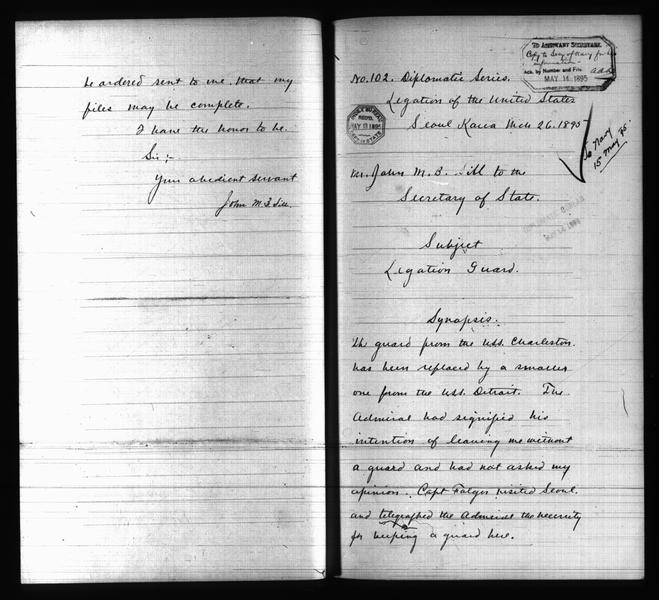 be ordered sent to me that my
files may be complete.
I have the honor to be
Sir;-
Your obedient servant
John M. B. Sill.
TO ASSISTANT SECRETARY.
Copy to Secy of Navy for his
information
Ack. by Number and File
MAY 14 1895
No. 102. Diplomatic Series.
Legation of the United States
Seoul Korea Mch 26. 1895
MAY 13 1895
To Navy
15 May 95.
Mr. John M. B. Sill to the
Secretary of State.
Subject
Legation Guard.
Synopsis.
The guard from the USS. Charleston
has been replaced by a smaller
one from the USS. Detroit. The
Admiral had signified his
intention of leaving me without
a guard and had not asked my
opinion. Capt Folger visited Seoul
and telegraphed the Admiral the necessity
for keeping a guard here.